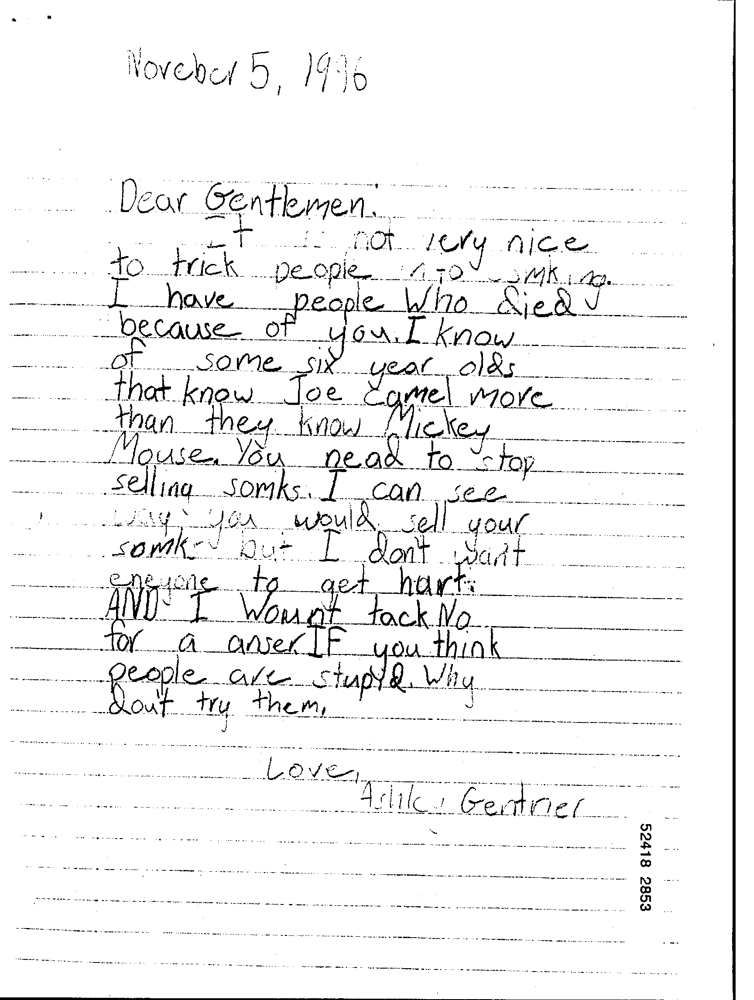 Noveber 5, 1996
Dear Gentlemen.
It is not very nice
to trick people into somking.
I have people Who died
because of you. I know
of some six year olds
that know Joe Camel more
than they know Mickey
Mouse. You nead to stop
selling somks. I can see
way you would sell your
somks but I don't want
eneyone to get hart.
AND I Woun't tack No
for a anser IF you think
people are stupyd. Why
don't try them.
Love,
Gentner
52418 2853